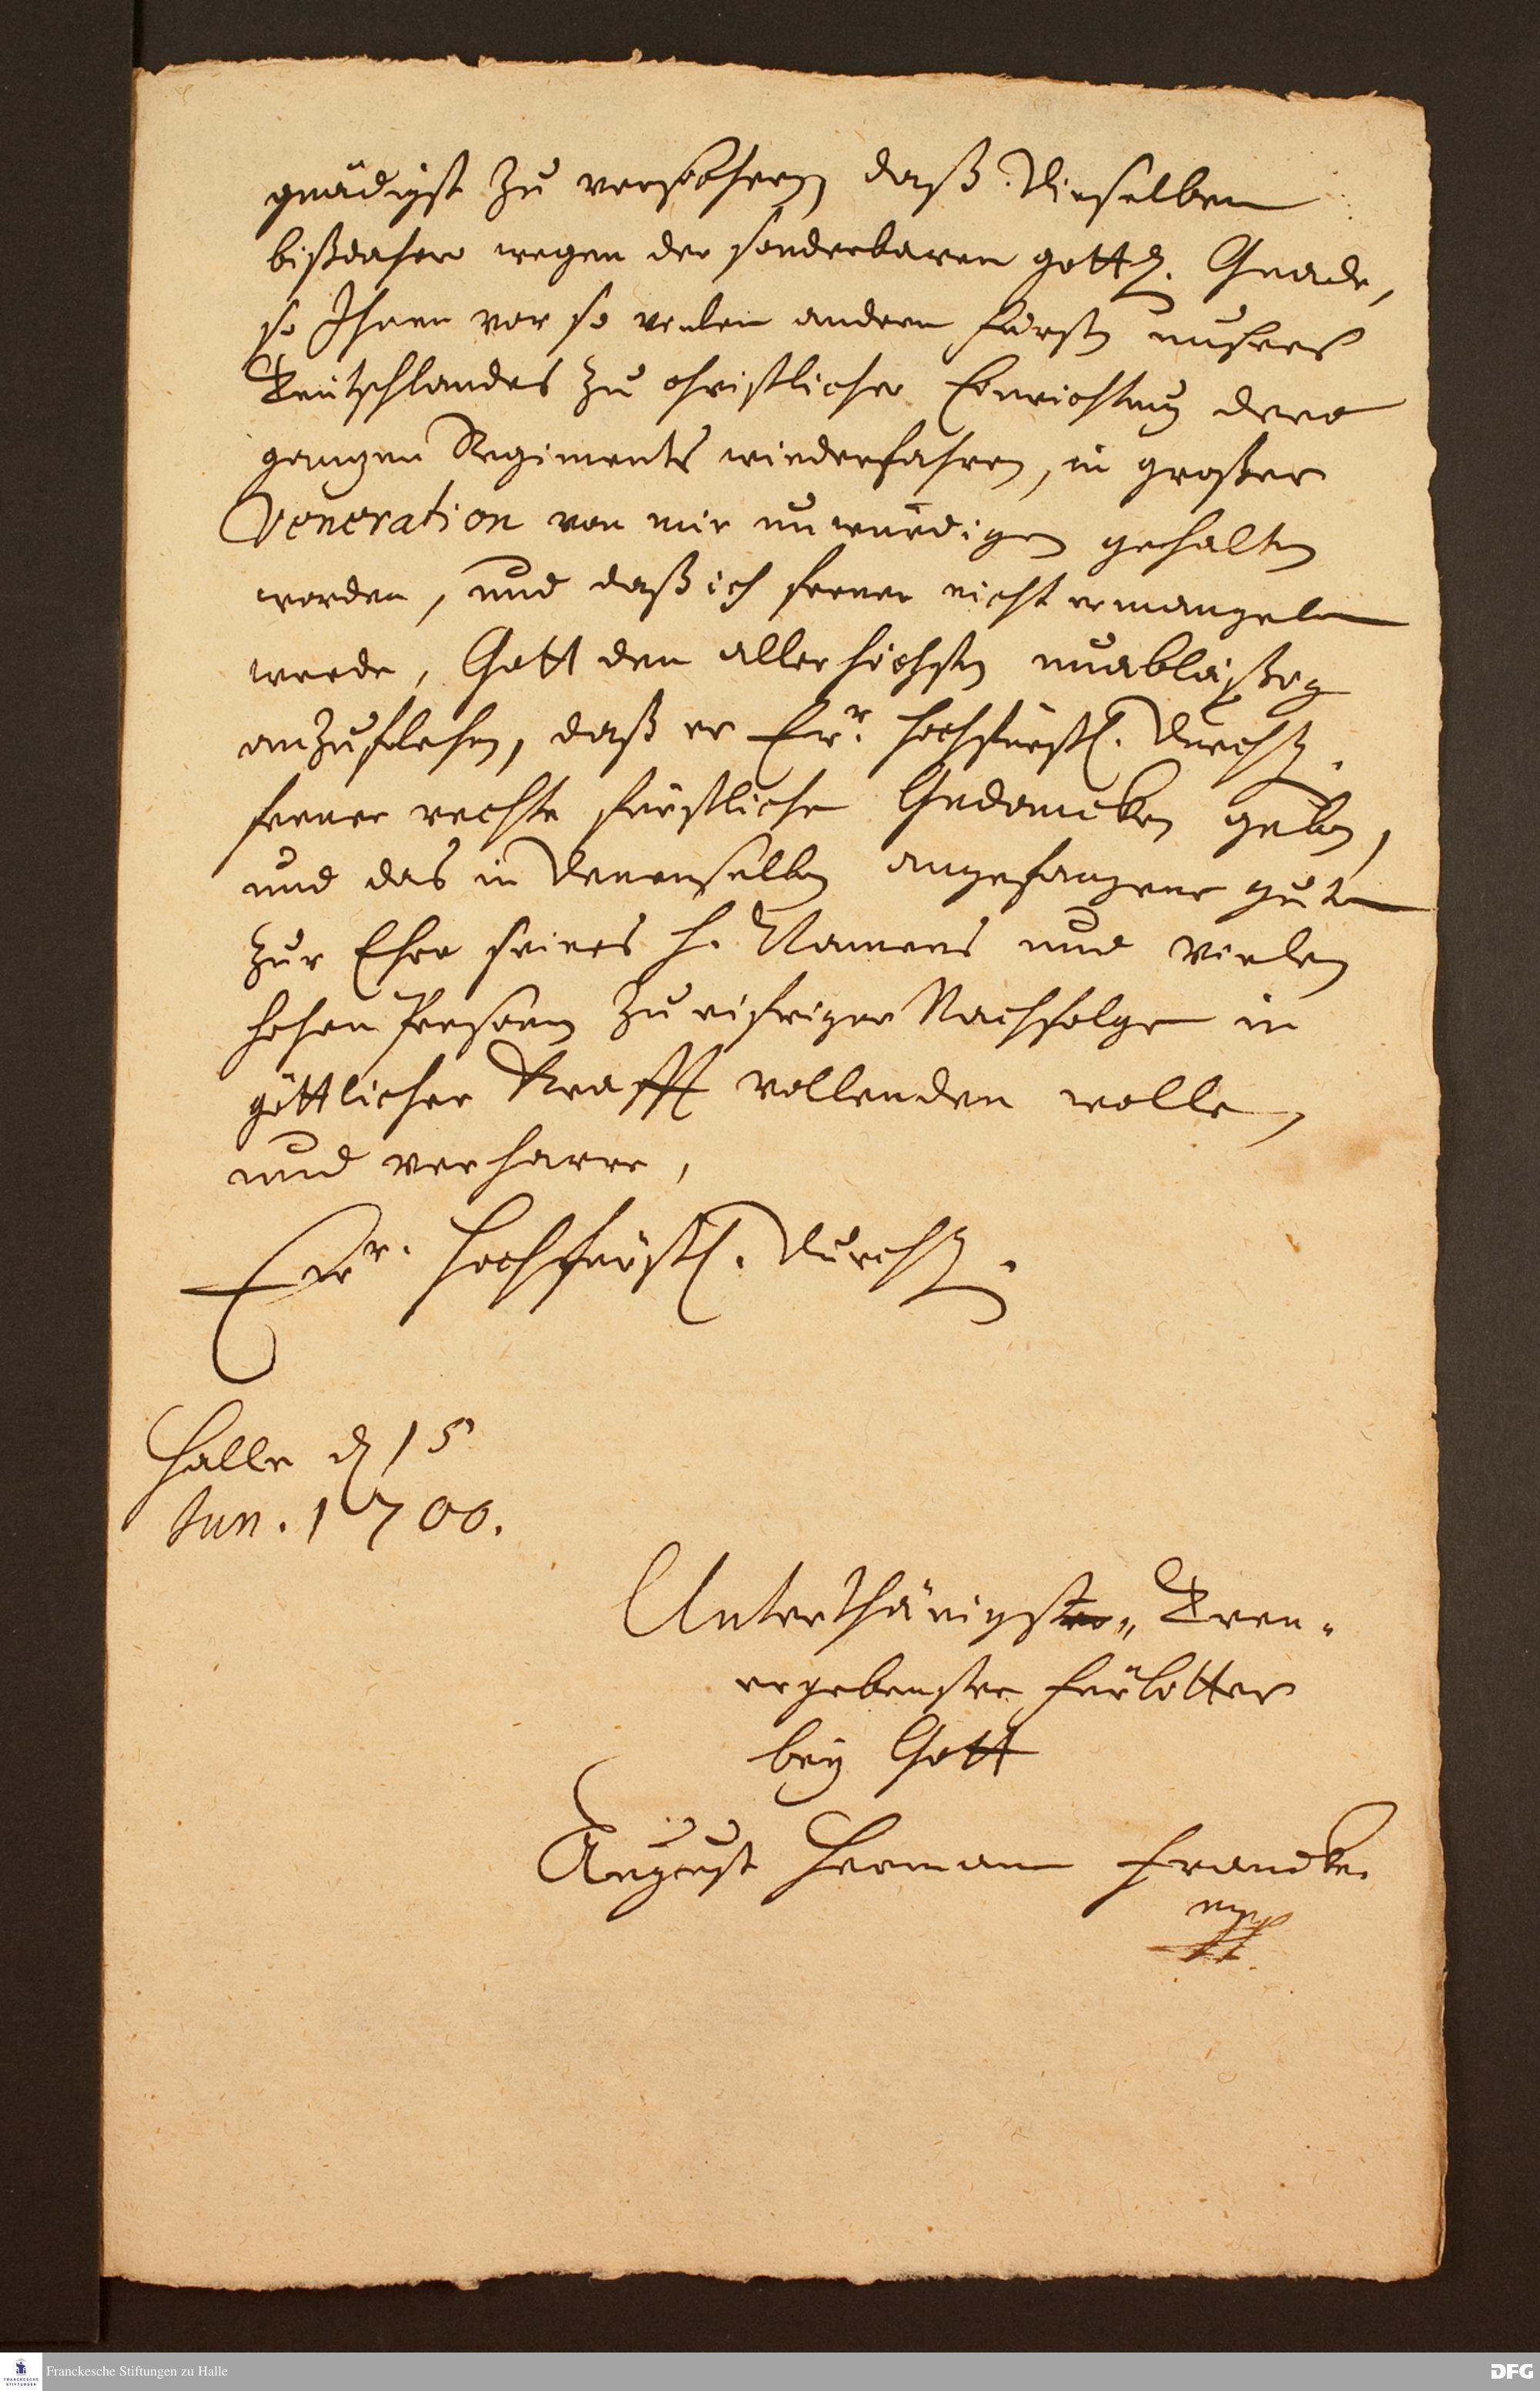 gnädigst zu versichern daß Dieselben
bißdahero wegen der sonderbaren göttl. Gnade,
so Ihnen vor so vielen andern Fürsten unsers
Teutschlandes zu christlicher Einrichtung dero
ganzen Regiments wiederfahren, in großer
Veneration von mir unwürdigen gehalten
worden, und daß ich ferner nicht ermangeln
werde, Gott den allerhöchsten unabläßig
anzuflehen, daß er Ewr. Hochfürstl. Durchl.
ferner rechte fürstliche Gedancken geben,
und das in Denenselben angefangene gute
zur Ehre seines H. Namens und vielen
hohen Personen zu eifriger Nachfolge in
göttlicher Krafft vollenden wolle,
und verharre,
Ewr. Hochfürstl. Durchl.
Halle d 15
Jun. 1700.
Unterthänigster, Treu-
ergebenster Fürbitter
bey Gott
August Herman Francke.
mpp
Franckesche Stiftungen zu Halle
DFG
FRANCKESCHE
STIFTUNGEN